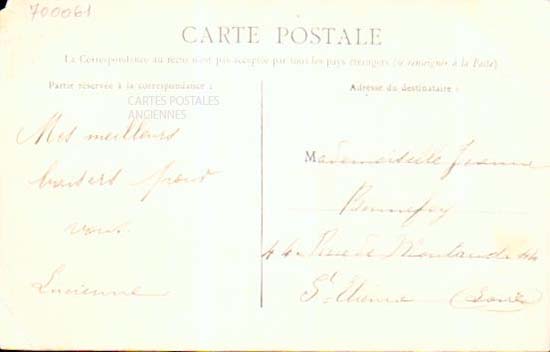 700061
CARTE POSTALE
La Correspondance au recto n'est pas acceptée par tous les pays étrangers (se renseigner à la Poste)
Partie réservée à la correspondance :
CARTES POSTALES
ANCIENNES
Mes meilleurs
baisers pour
vous.
Lucienne
Adresse du destinataire :
Mademoiselle Jeanne
Bonnefoy
44 Rue de 44
St Etienne (Loire)